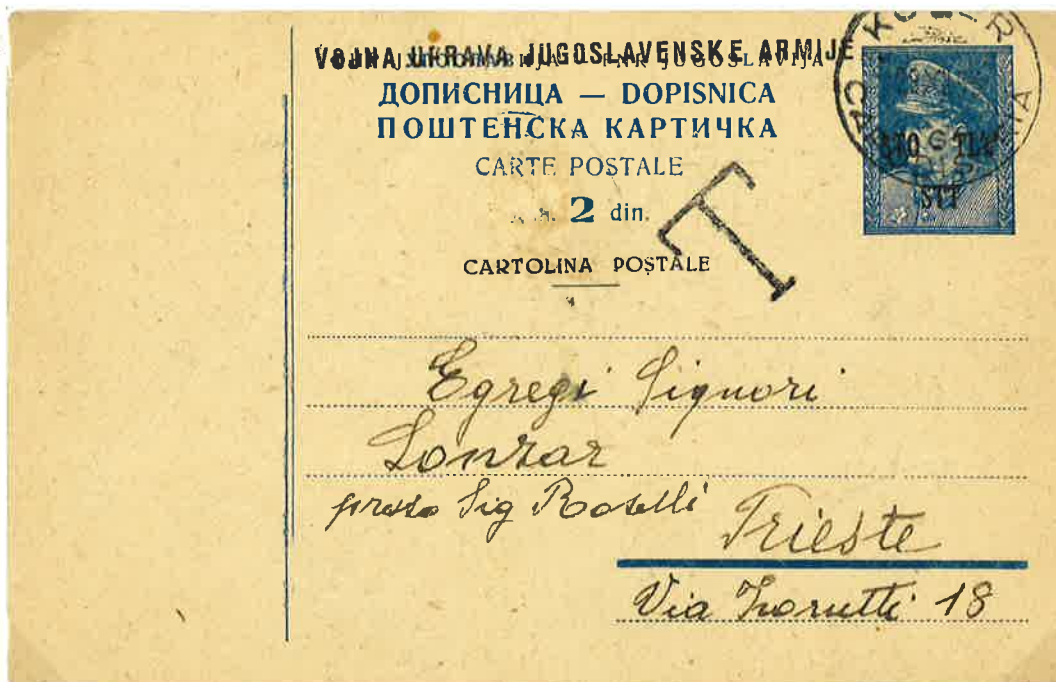 VOJNA UPRAVA JUGOSLAVENSKE ARMIJE
ДОПИСНИЦА — DOPISNICA
ПОШТЕНСКА КАРТИЧКА
CARTE POSTALE
2 din.
CARTOLINA POSTALE
T
STT
Egregi Signori
Lonzar
presso Sig Roselli
Trieste
Via Zorutti 18